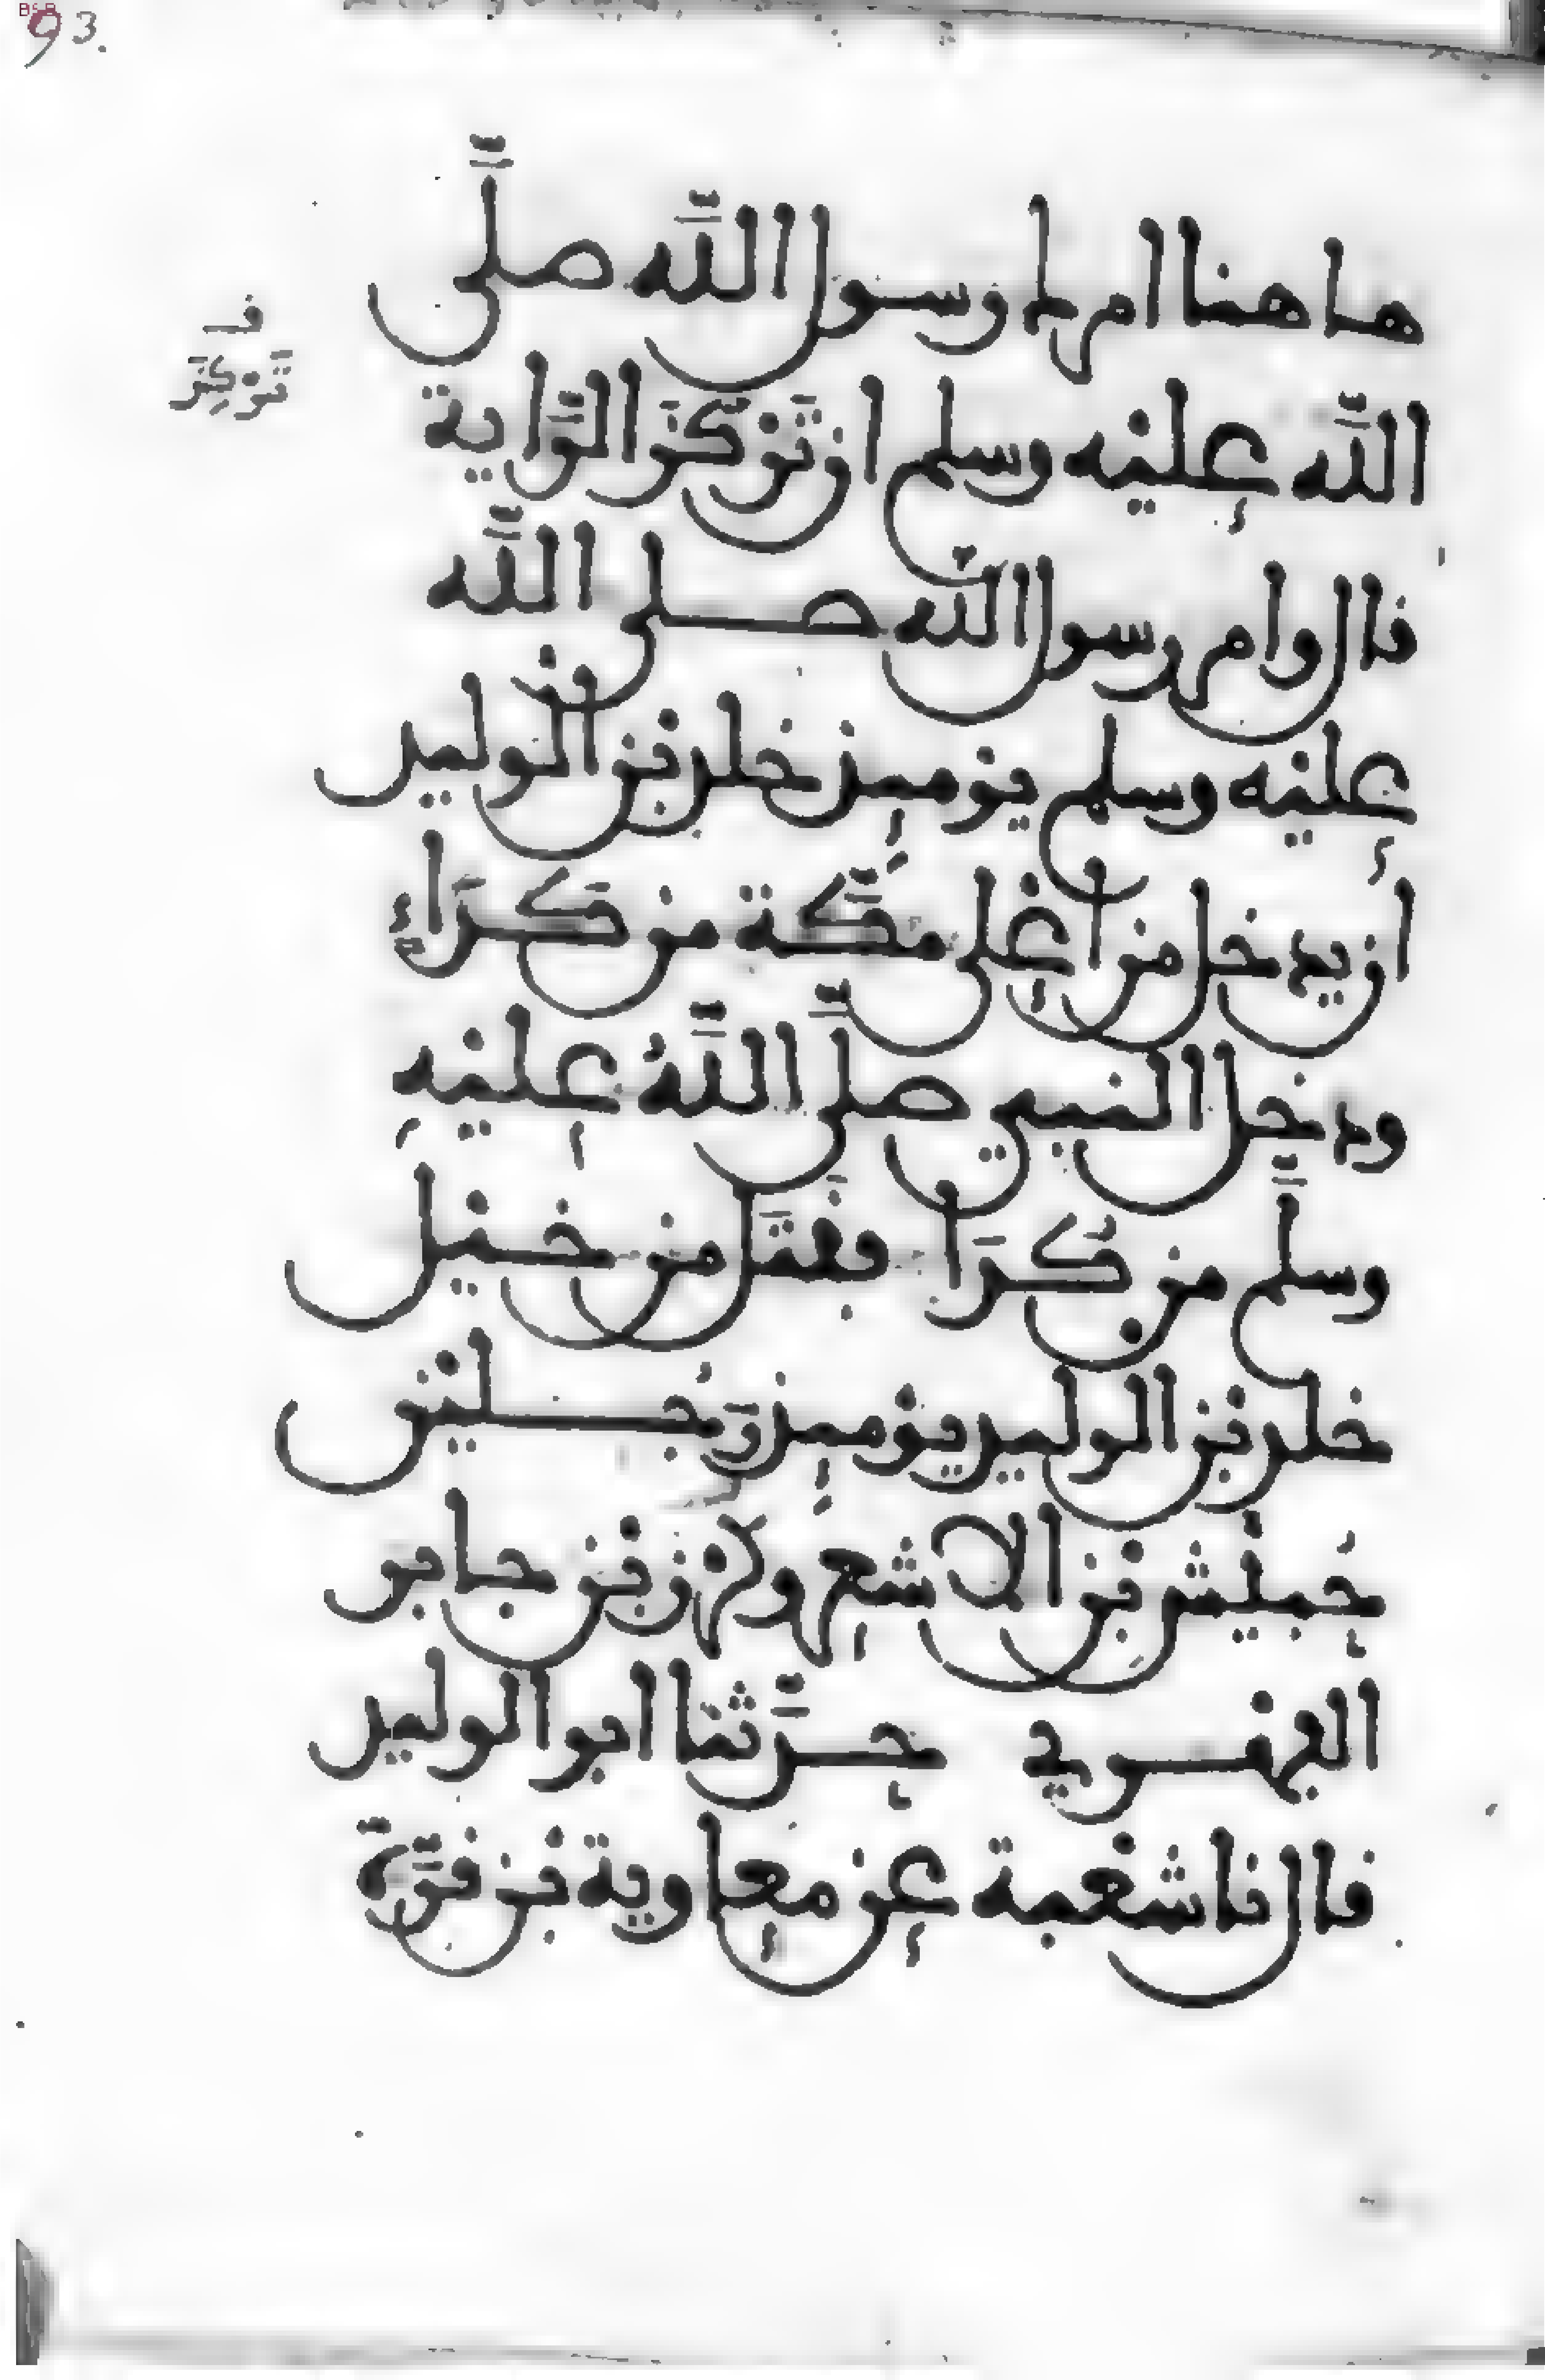 93.
هاهنا امرك رسول الله صلَّى
الله عليه وسلم ان تَرْكُزَ الرَّاية
قال وامر رسول الله صلى الله
عليه وسلم يومئذ خلد بن الوليد
أن يدخل من اعْلى مكَّة من كَدَاءٍ
ودخل النبي صلَّى اللَّهُ عليْهِ
وسلَّم من كُدَا فقُتَل من خيْل
خلد بن الوليد يومئذ رَجُليْن
حُبيْش بن الاشعر وكرْز بن جابر
الفهري حدَّثنا ابو الوليد
قال نا شعْبة عن معاوية بن قرَّة
ف
تَرْكِزَ